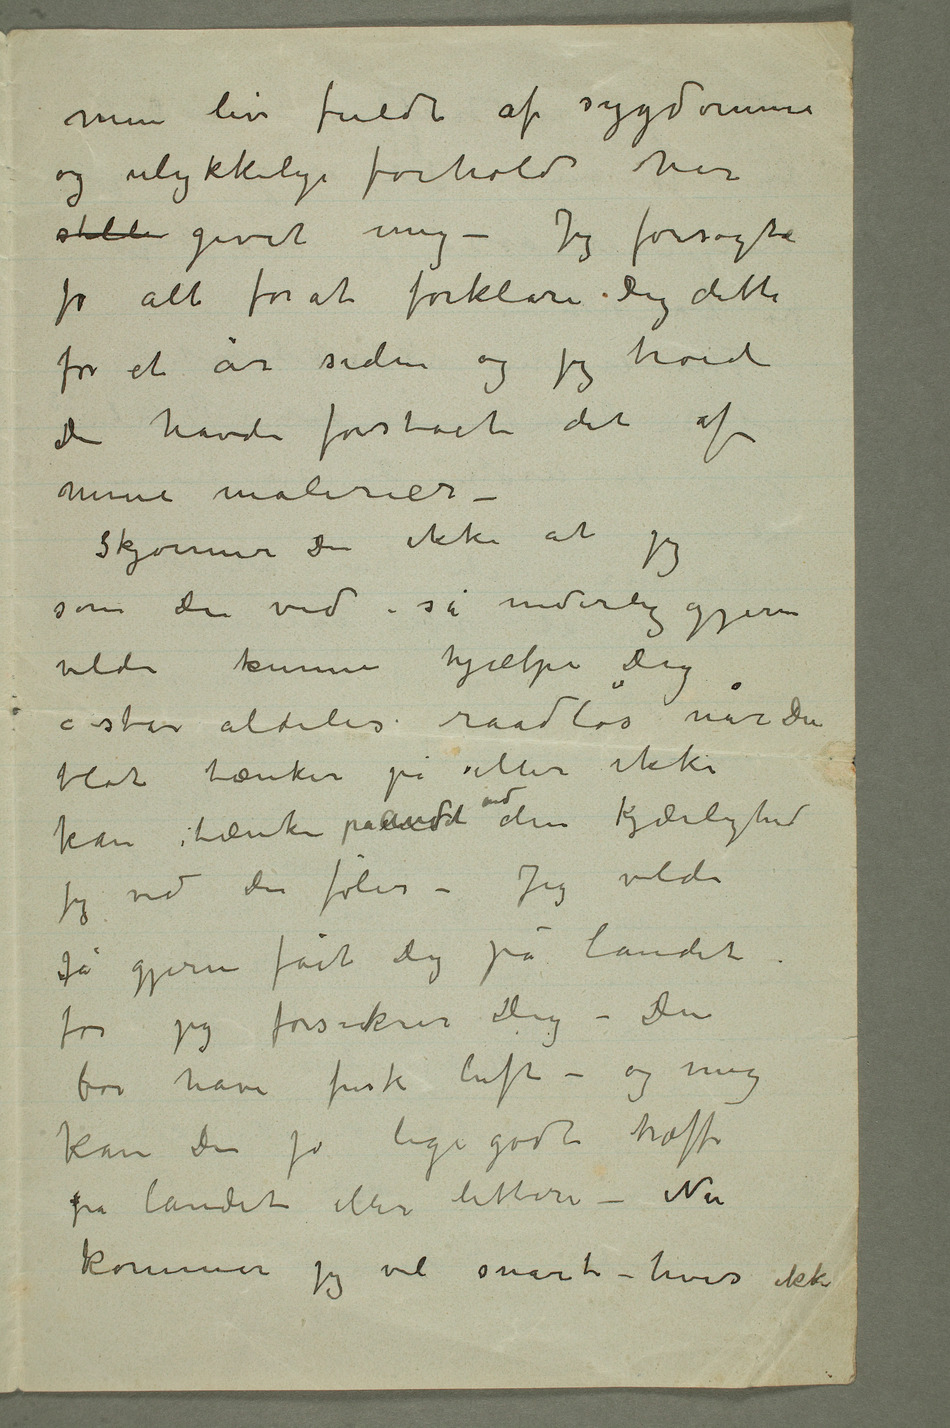 min liv fuldt af sygdomme
og ulykkelige forhold har
stille givet mig – Jeg forsøgte
jo alt forat forklare Dig dette
for et år siden og jeg troede
Du havde forstået det af
mine malerier –
Skjønner Du ikke at jeg
som Du ved – så inderlig gjerne
vilde kunne hjælpe Dig
a står aldeles raadløs når Du
blot tænker på eller ikke
kan tænke på andet end den Kjærlighed
jeg ved Du føler – Jeg vilde
så gjerne fået Dig på landet –
for jeg forsikrer Dig – Du
bør have frisk luft – og mig
kan Du jo ligegodt træffe
på landet eller lettere – Nu
kommer jeg vel snart – hvis ikke